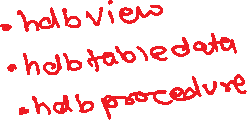 .hdbview
.hdbtabledata
.hdbprocedure